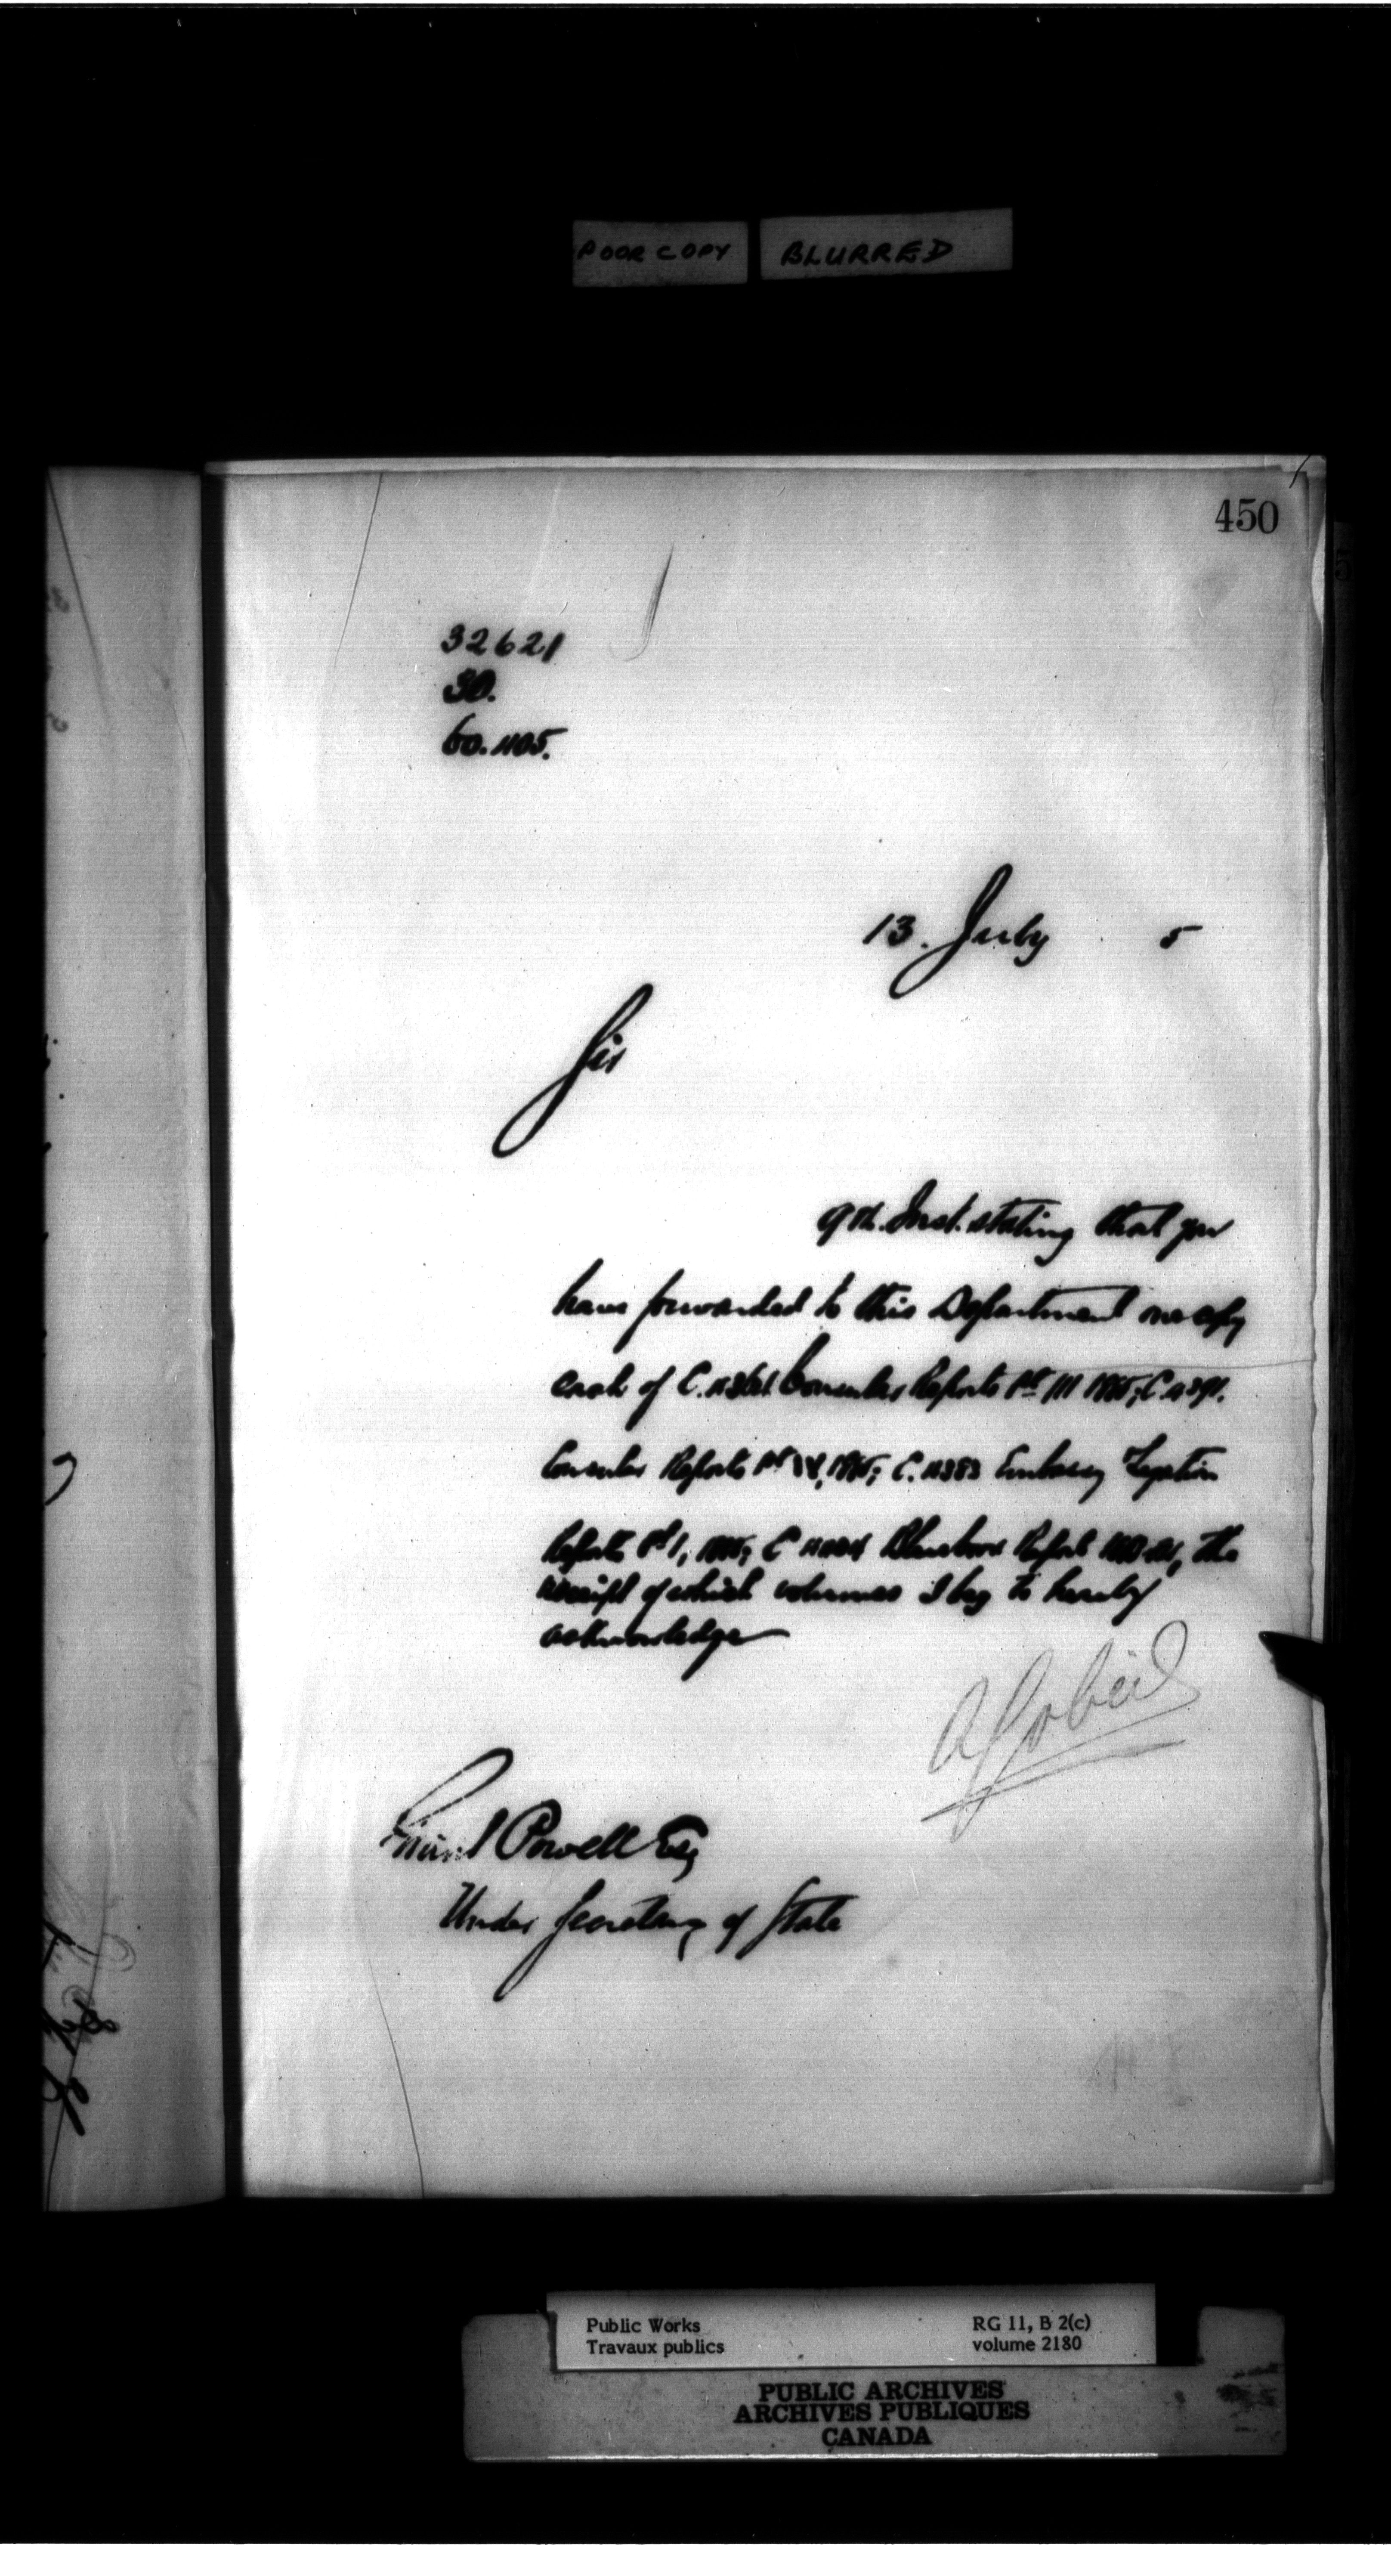 POOR COPY BLURRED
450
32621
30.
60.1105.
13. July 5
Sir
9th. Inst. stating that you
have forwarded to this Department one copy
each of C. Consular Reports Pt III 1885; C.
Consular Reports Pt 1885; C. Embassy Legation
Reports Pt 1, 1885; C Report the
receipt of which volumes I beg to hereby
acknowledge
A Gobeil
Grant Powell Esq
Under Secretary of State
Public Works RG 11, B 2(c)
Travaux publics volume 2180
PUBLIC ARCHIVES
ARCHIVES PUBLIQUES
CANADA